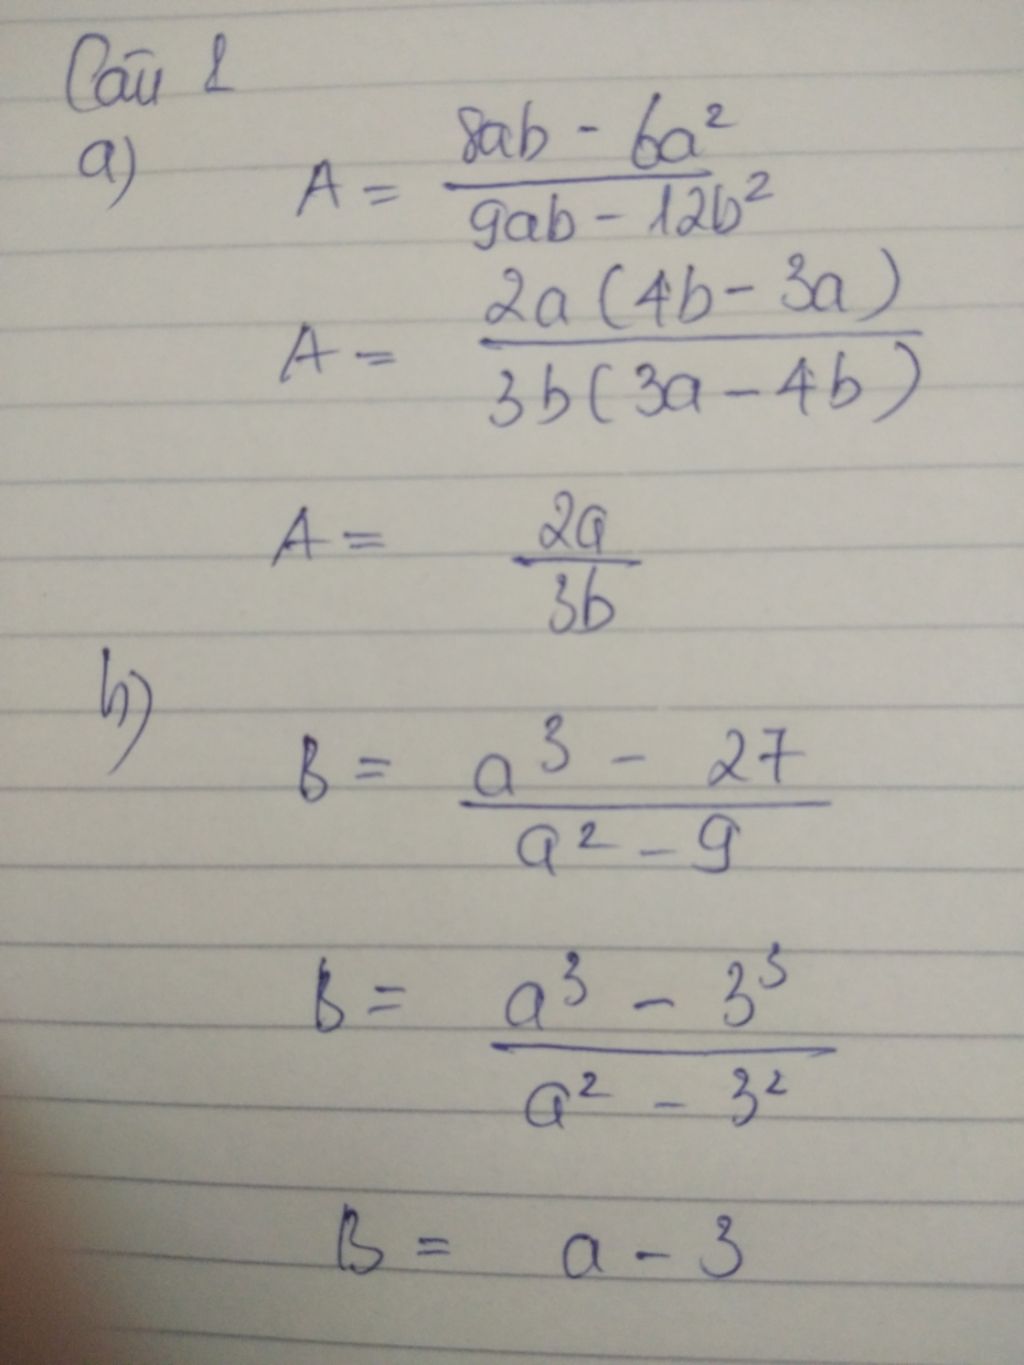 Câu 1
a) A = \frac{8ab - 6a^2}{9ab - 12b^2}
A = \frac{2a(4b - 3a)}{3b(3a - 4b)}
A = \frac{2a}{3b}
b)
B = \frac{a^3 - 27}{a^2 - 9}
B = \frac{a^3 - 3^3}{a^2 - 3^2}
B = a - 3